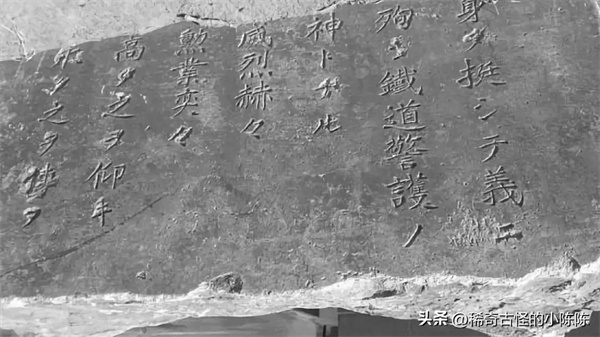 身ヲ挺シテ義ニ
殉シ鐵道警護ノ
神トナル
威烈赫々
勲業奕々
高ク之ヲ仰キ
ク之ヲ傳
头条 @稀奇古怪的小陈陈